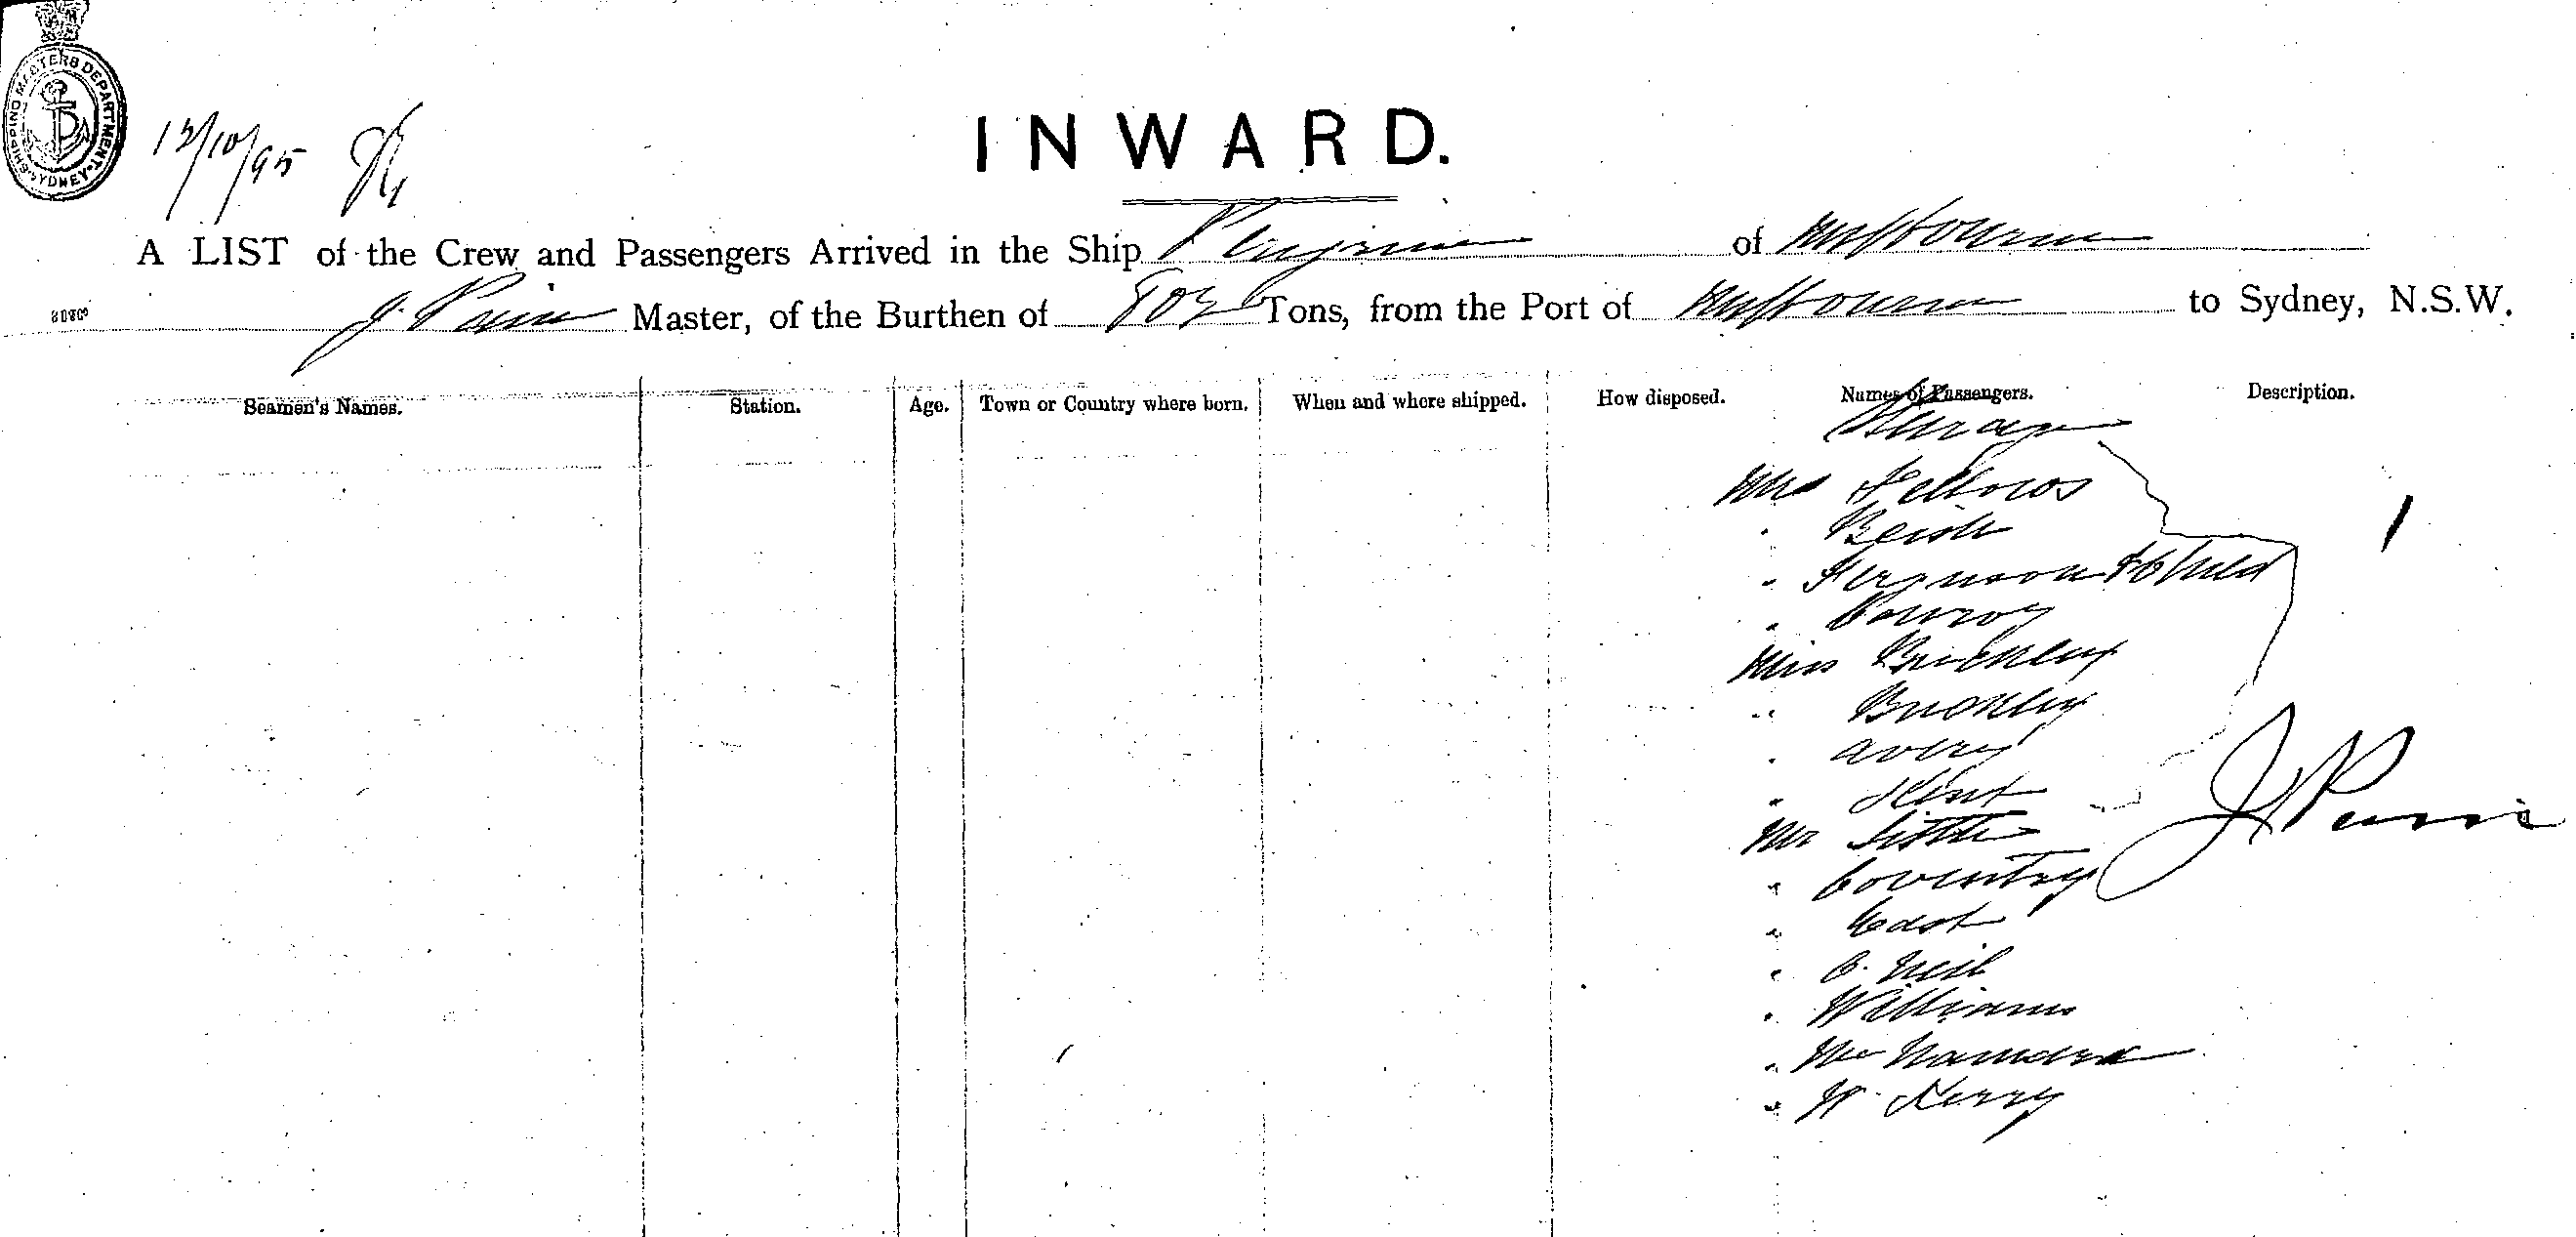 SHIPPING MASTERS DEPARTMENT SYDNEY
12/10/95
INWARD.
A LIST of the Crew and Passengers Arrived in the Ship of Melbourne
J. Pain Master, of the Burthen of Tons, from the Port of Melbourne to Sydney, N.S.W.
Seamen's Names. Station. Age. Town or Country where born. When and where shipped. How disposed. Names of Passengers. Description.
Mrs Fellows
" Ferguson & Child
" Conroy
Miss Brickley
" Buckley
" Avery
" Kent
Mr Little
" Coventry
" East
" O. Neil
" Williams
" McNamara
" W. Kerry
J Pain